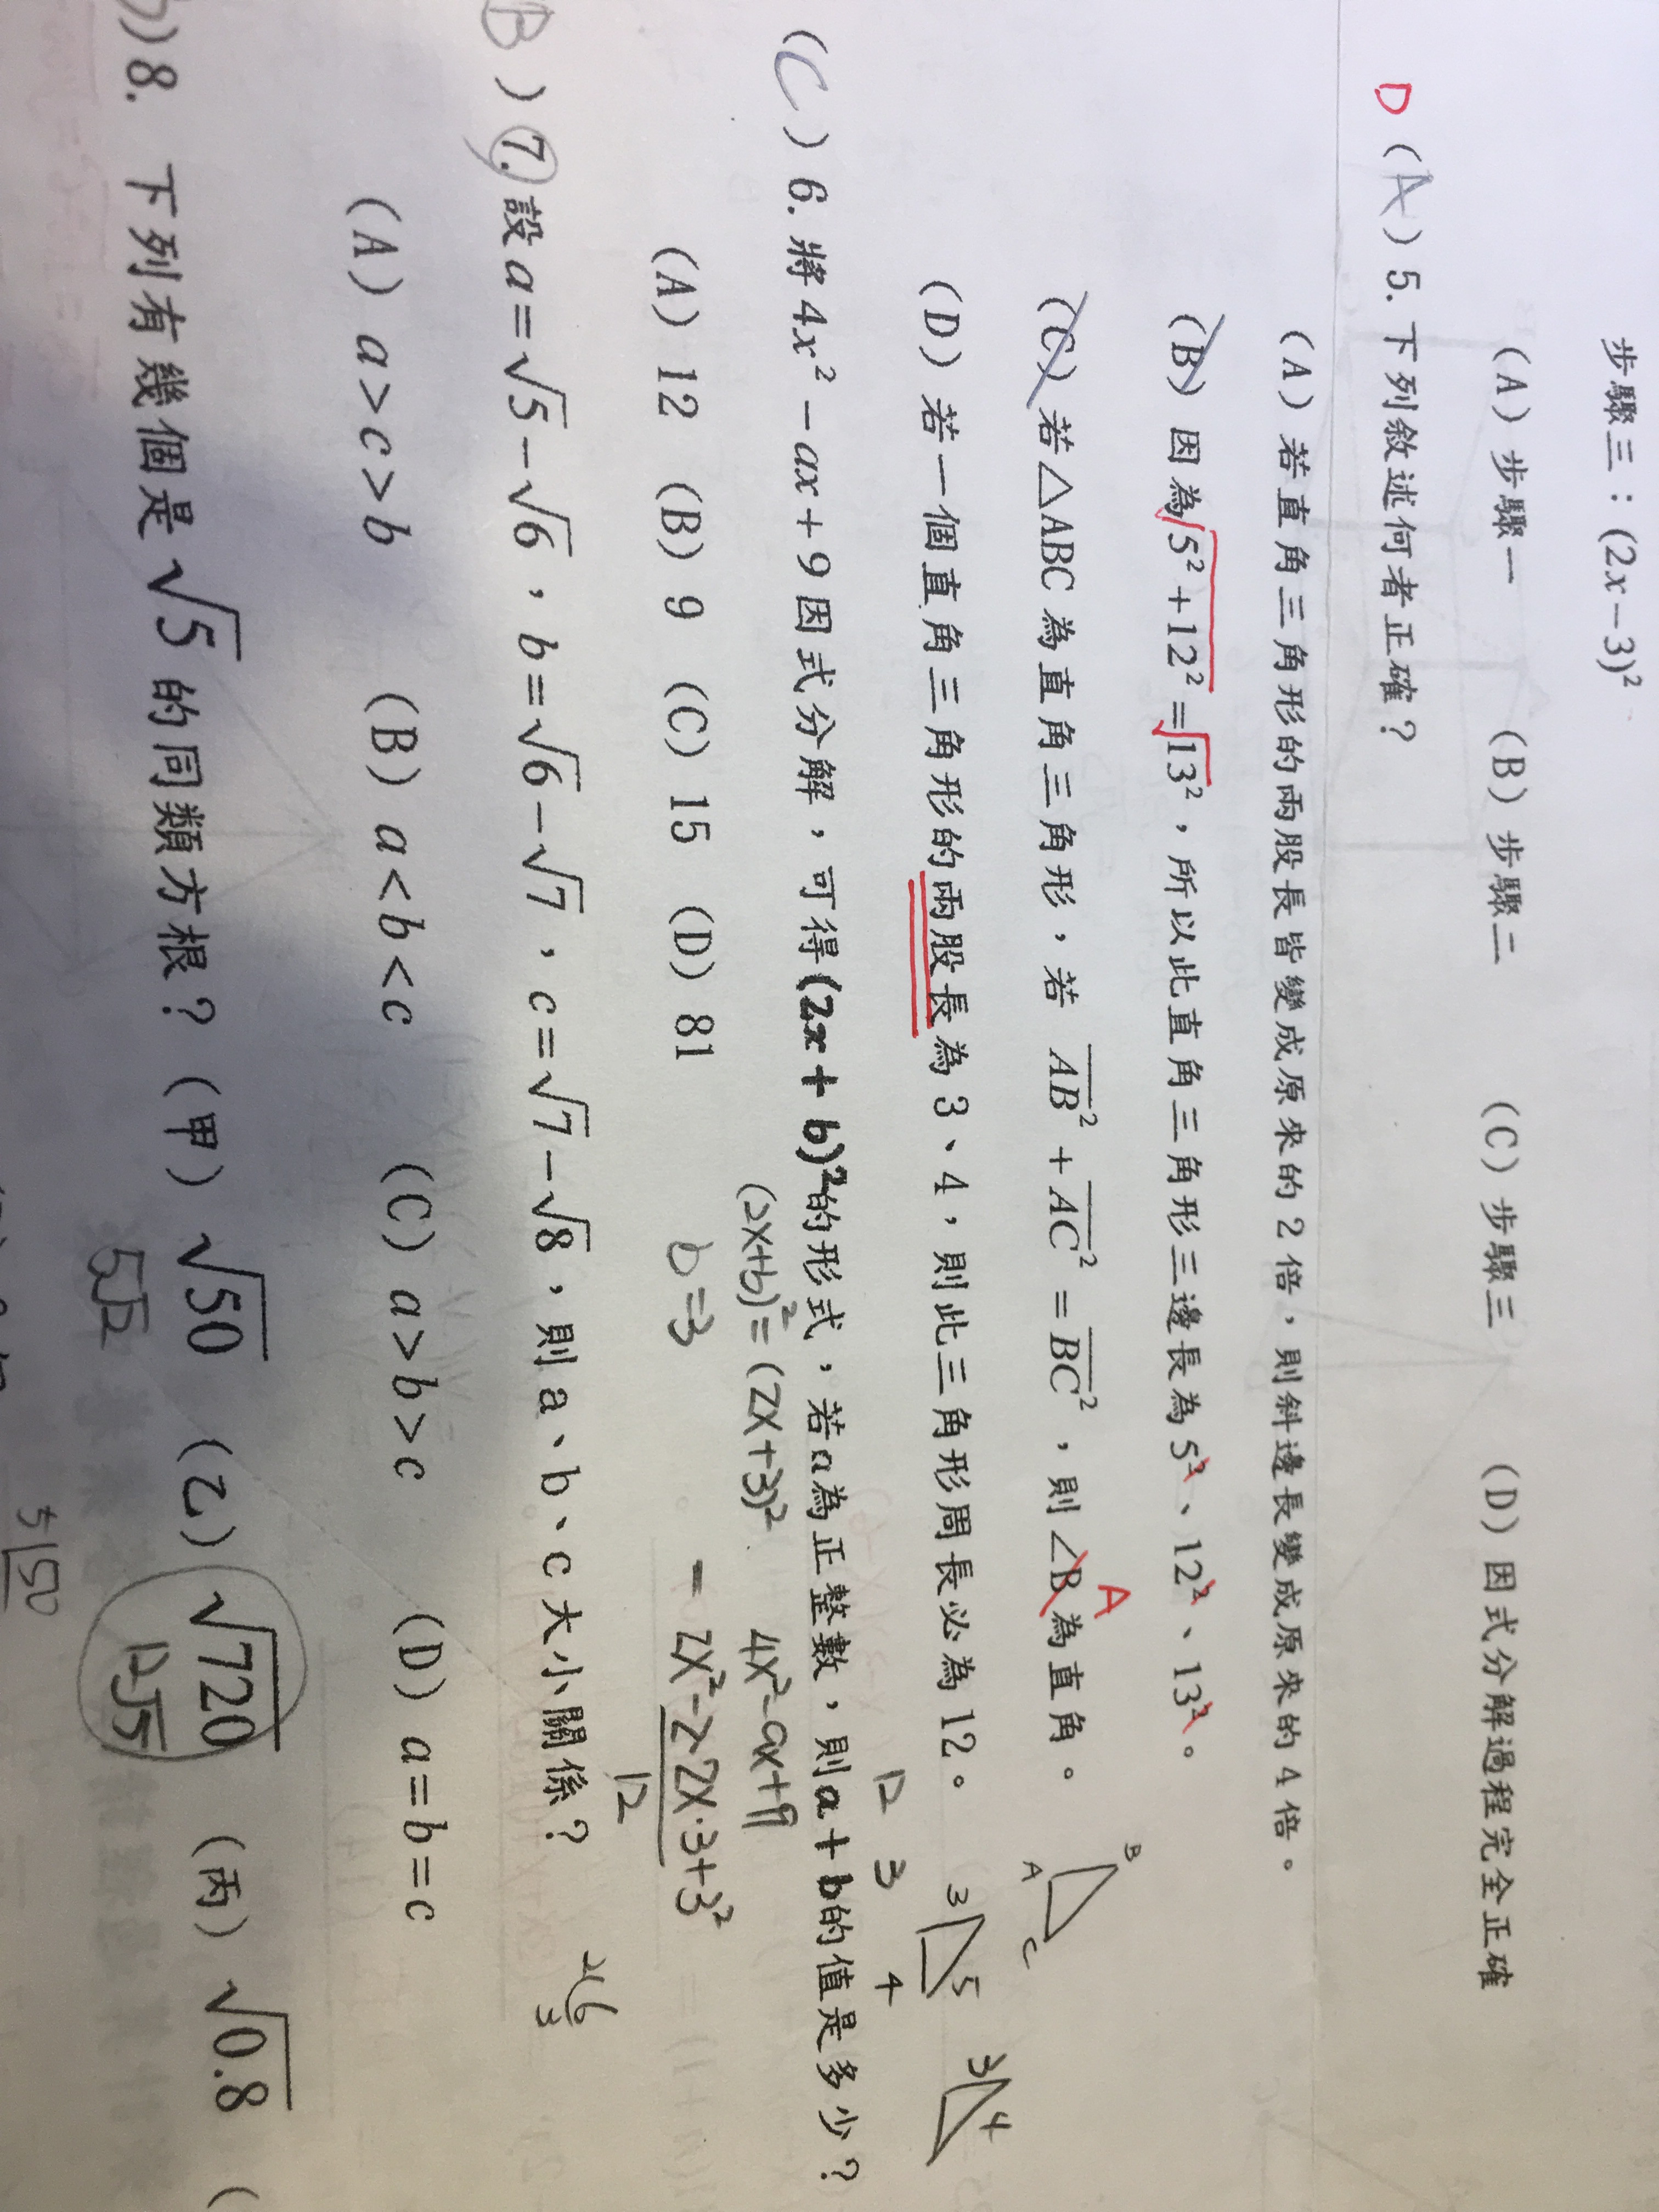 步驟三：(2x－3)²
(A) 步驟一 (B) 步驟二 (C) 步驟三 (D) 因式分解過程完全正確
D (A) 5. 下列敘述何者正確？
(A) 若直角三角形的兩股長皆變成原來的 2 倍，則斜邊長變成原來的 4 倍。
(B) 因為√5²＋12²＝√13²，所以此直角三角形三邊長為 5²、12²、13²。
(C) 若△ABC 為直角三角形，若 AB²＋AC²＝BC²，則∠B 為直角。
A
B
A
C
(D) 若一個直角三角形的兩股長為 3、4，則此三角形周長必為 12。
3 5
3 4
12 3 4
(C) 6. 將 4x²－ax＋9 因式分解，可得(2x＋b)²的形式，若a為正整數，則a＋b的值是多少？
(2x+b)²=(2x+3)² 4x²-ax+9
(A) 12 (B) 9 (C) 15 (D) 81
b=3 2x²-2·2x·3+3²
12
B ) 7. 設 a＝√5－√6，b＝√6－√7，c＝√7－√8，則 a、b、c 大小關係？
(A) a＞c＞b (B) a＜b＜c (C) a＞b＞c (D) a＝b＝c
) 8. 下列有幾個是 √5 的同類方根？ (甲) √50 (乙) √720 (丙) √0.8 (
5√2 12√5
5 50